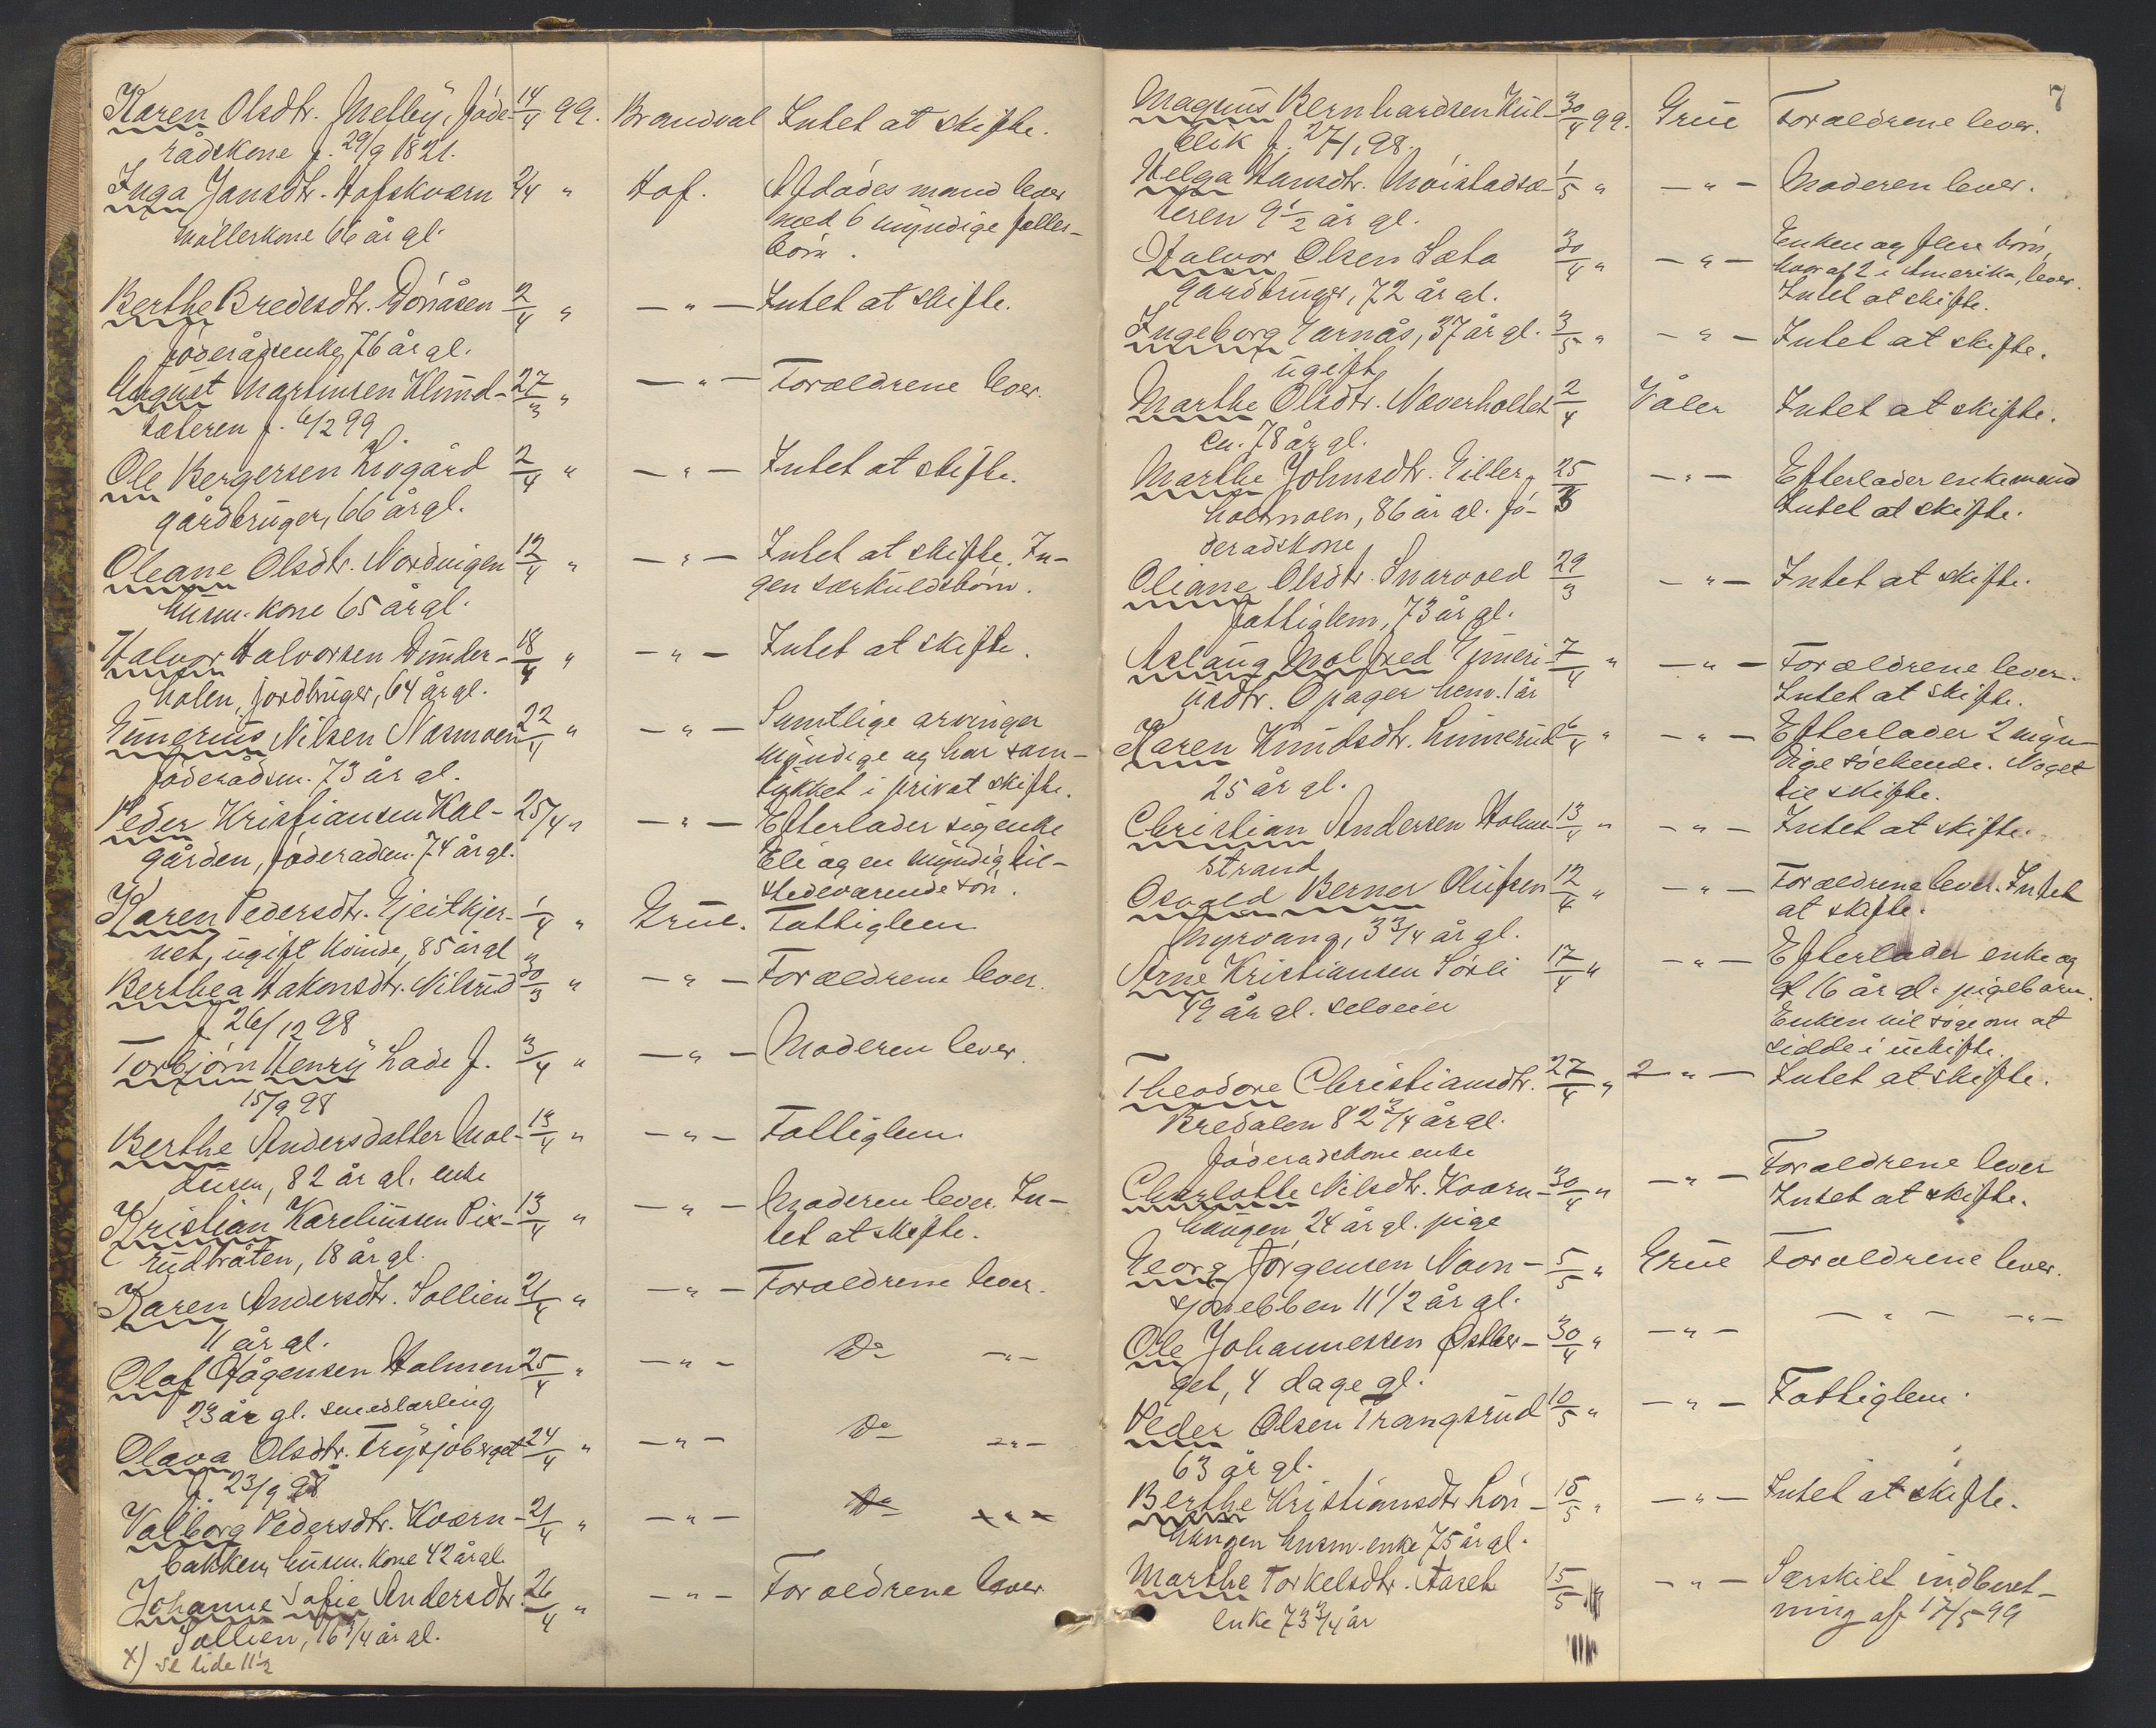 Karen Olsdtr. Melby, føde- 14/4 99. Brandval Intet at skifte.
rådskone f. 29/9 1821.
Inga Jansdtr. Hofskværn 2/4 " Hof. Afdødes mand lever
møllerkone 66 år gl. med 6 myndige fælles-
børn.
Berthe Bredesdtr. 2/4 " — " — Intet at skifte.
føderådsenke 76 år gl.
August Martinsen Klund- 27/3 " — " — Forældrene lever.
sæteren f. 6/2 99
Ole Bergersen Livgård 2/4 " — " — Intet at skifte.
gårdbruger, 66 år gl.
Oleane Olsdtr. Nordvigen 12/4 " — " — Intet at skifte. In-
husm. kone 65 år gl. gen særkuldsbørn.
Halvor Halvorsen Dunder- 18/4 " — " — Intet at skifte.
holen, jordbruger, 64 år gl.
Gunerius Nilsen Næsmoen 22/4 " — " — Samtlige arvinger
føderådsm. 73 år gl. myndige og har sam-
tykket i privat skifte.
Peder Kristiansen Kal- 25/4 " — " — Efterlader sig enke
gården, føderådsm. 74 år gl. Eli og en myndig til-
stedeværende søn.
Karen Pedersdtr. Gjeitkjer- 1/4 " Grue. Fattiglem
net, ugift kvinde, 85 år gl
Berthea Hakonsdtr. Nilsrud 30/3 " — " — Forældrene lever.
f 26/12 98
Torbjørn Henry Lade f. 3/4 " — " — Moderen lever.
15/9 98
Berthe Andersdatter Mol- 13/4 " — " — Fattiglem
dusen, 82 år gl. enke
Kristian Kareliussen Pix- 13/4 " — " — Moderen lever. In-
rudbråten, 18 år gl. tet at skifte.
Karen Andersdtr. Sollien 21/4 " — " — Forældrene lever.
11 år gl.
Olaf Hågensen Holmen 25/4 " — " — Do — " —
23 år gl. smedlærling
Olava Olsdtr. Frysjøberget 24/4 " — " — Do — " —
f. 23/9 98
Valborg Pedersdtr. Kværn- 21/4 " — " — Do × " ×
bakken, husm. kone 42 år gl.
Johanne Sofie Andersdtr. 26/4 " — " — Forældrene lever
Sollien, 16 3/4 år gl.
×) se side 11 1/2
7
Magnus Bernhardsen Kul- 30/4 99. Grue Forældrene lever.
blik f. 27/1 98.
Helga Hansdtr. Møistadsæ- 1/5 " — " — Moderen lever.
teren 9 1/2 år gl.
Halvor Olsen Sæta 30/4 " — " — Enken og flere børn,
gårdbruger, 72 år gl. hvoraf 2 i Amerika, lever.
Intet at skifte.
Ingeborg Garnås, 37 år gl. 3/5 " — " — Intet at skifte.
ugift
Marthe Olsdtr. Næverholtet 2/4 Våler Intet at skifte.
en. 78 år gl.
Marthe Johnsdtr. Gitter- 25/3 — " — Efterlader enkemand
holmoen, 86 år gl. fø- Intet at skifte.
deradskone
Oliane Olsdtr. Snarvold 29/3 — " — Intet at skifte.
fattiglem, 73 år gl.
Aslaug Molfred Guneri- 7/4 " — " — Forældrene lever.
usdtr. Opager henv. 1 år Intet at skifte.
Karen Knudsdtr. Linnerud 6/4 " — " — Efterlader 2 myn-
25 år gl. dige søskende. Noget
til skifte.
Christian Andersen Holm- 13/4 " — " — Intet at skifte.
strand
Osvald Berner Olufsen 12/4 " — " — Forældrene lever. Intet
Myrvang, 3 3/4 år gl. at skifte.
Arne Kristiansen Sørli 17/4 " — " — Efterlader enke og
49 år gl. selveier et 16 år gl. pigebarn.
Enken vil søge om at
sidde i uskifte.
Theodore Christiansdtr. 27/4 " 2 — " — Intet at skifte.
Bredalen 82 3/4 år gl.
føderadskone enke
Charlotte Nilsdtr. Kværn- 30/4 " — " — Forældrene lever
haugen 24 år gl. pige Intet at skifte.
Georg Jørgensen Navn- 5/5 " Grue Forældrene lever.
sjøsebben 11 1/2 år gl.
Ole Johannessen Østber- 30/4 " — " — — " — — " —
get, 4 dage gl.
Peder Olsen Trangsrud 10/5 " — " — Fattiglem.
63 år gl.
Berthe Kristiansdtr. Løv- 15/5 " — " — Intet at skifte.
haugen husm. enke 75 år gl.
Marthe Torkelsdtr. Aaset 15/5 — " — Særskilt indberet-
enke 73 3/4 år ning af 17/5 99